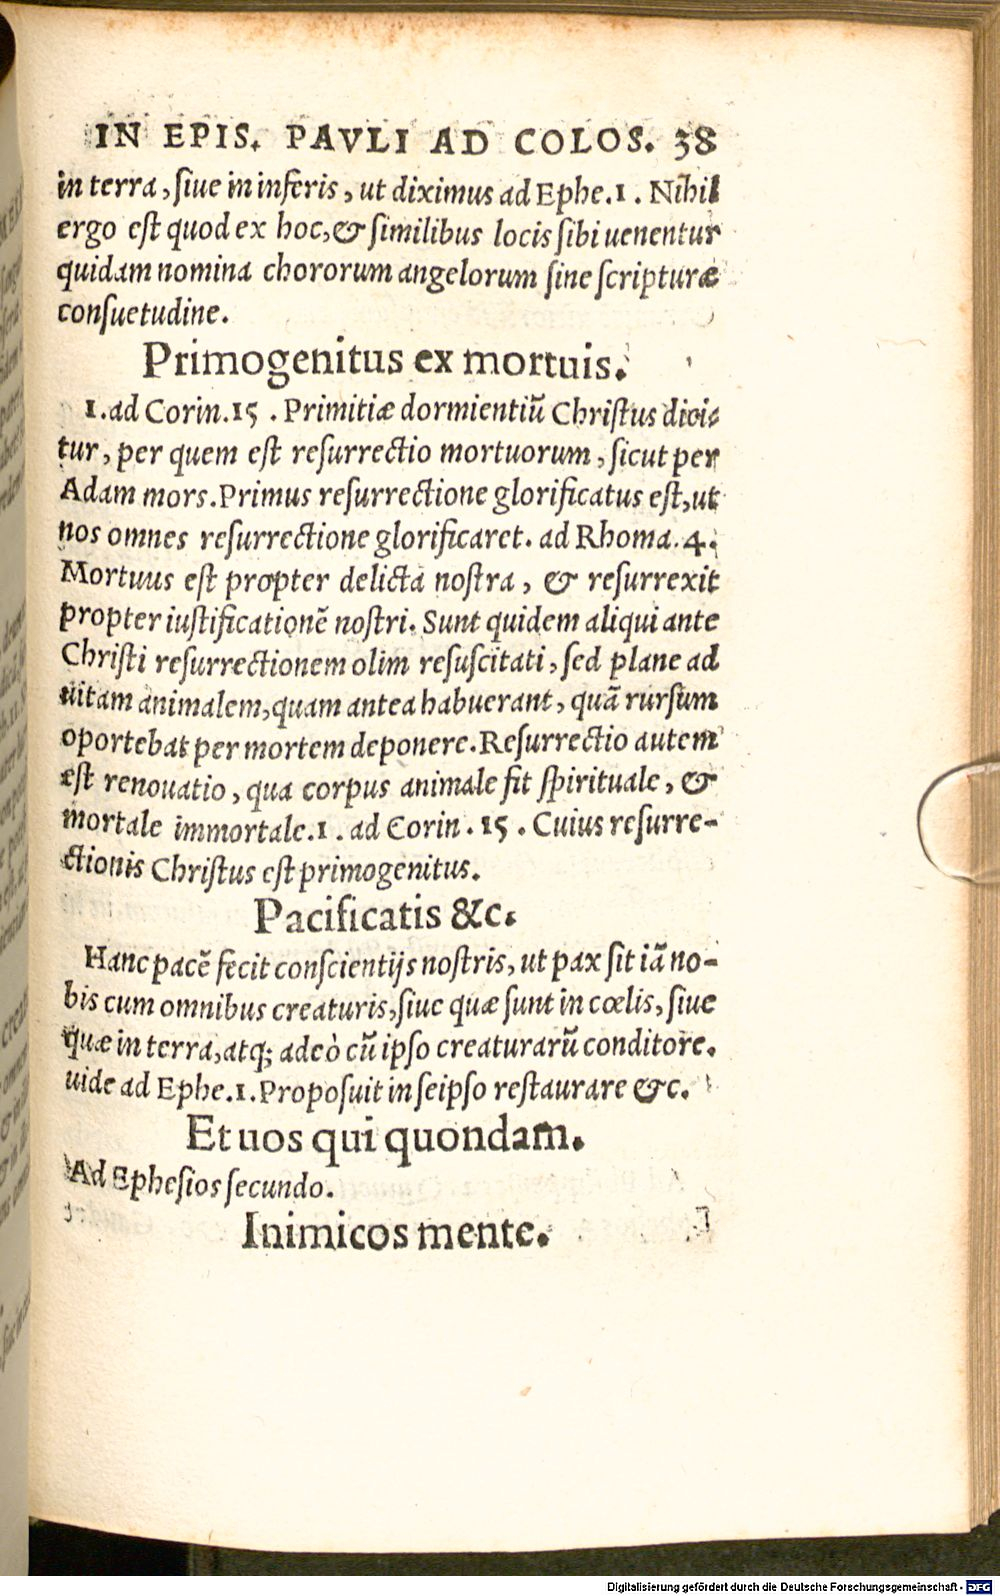 IN EPIS. PAVLI AD COLOS. 38
in terra, siue in inferis, ut diximus ad Ephe.1. Nihil
ergo est quod ex hoc, & similibus locis sibi uenentur
quidam nomina chororum angelorum sine scripturæ
consuetudine.
Primogenitus ex mortuis.
1. ad Corin.15. Primitiæ dormientiū Christus dici-
tur, per quem est resurrectio mortuorum, sicut per
Adam mors. Primus resurrectione glorificatus est, ut
nos omnes resurrectione glorificaret. ad Rhoma.4.
Mortuus est propter delicta nostra, & resurrexit
propter iustificationē nostri. Sunt quidem aliqui ante
Christi resurrectionem olim resuscitati, sed plane ad
uitam animalem, quam antea habuerant, quā rursum
oportebat per mortem deponere. Resurrectio autem
est renouatio, qua corpus animale fit spirituale, &
mortale immortale.1. ad Corin.15. Cuius resurre-
ctionis Christus est primogenitus.
Pacificatis &c.
Hanc pacē fecit conscientijs nostris, ut pax sit iā no-
bis cum omnibus creaturis, siue quæ sunt in cœlis, siue
quæ in terra, atq; adeò cū ipso creaturarū conditore.
uide ad Ephe.1. Proposuit in seipso restaurare &c.
Et uos qui quondam.
Ad Ephesios secundo.
Inimicos mente.
Digitalisierung gefördert durch die Deutsche Forschungsgemeinschaft - DFG